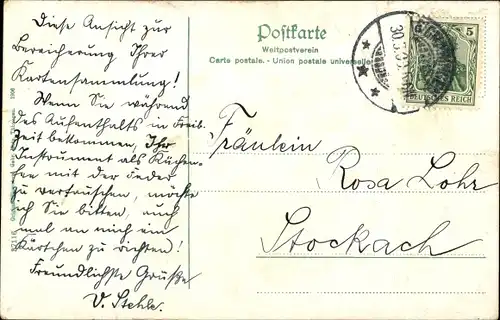 Diese Ansicht zur
Bereicherung Ihrer
Kartensammlung!
Wenn Sie während
des Aufenthalts in Freib.
Zeit bekommen, Ihr
Instrument als Küchen-
fee mit der Feder
zu vertauschen, möchte
ich Sie bitten, auch
mal an mich ein
Kärtchen zu richten!
Freundlichste Grüße
V. Stehle.
Postkarte
Weltpostverein
Carte postale. - Union postale universelle
5
DEUTSCHES REICH
30.3
Fräulein
Rosa Lohr
Stockach